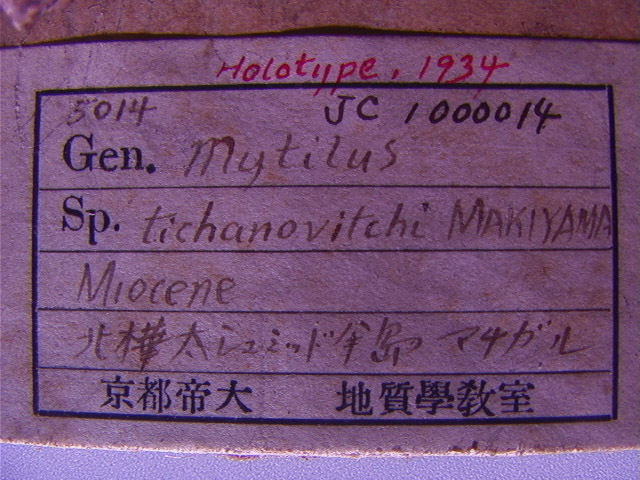 Holotype, 1934
5014 JC 1000014
Gen. Mytilus
Sp. tichanovitchi MAKIYAMA
Miocene
北樺太シュミッド半島 マチガル
京都帝大 地質學教室